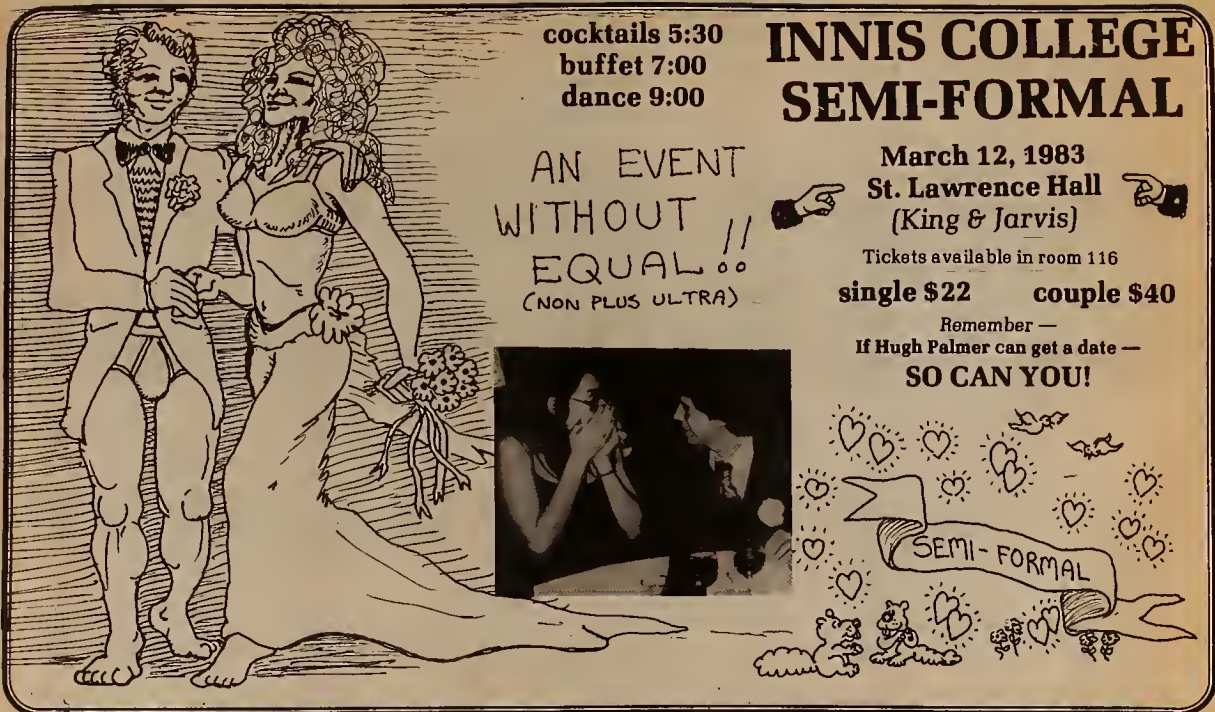 cocktails 5:30
buffet 7:00
dance 9:00
AN EVENT
WITHOUT
EQUAL!!
(NON PLUS ULTRA)
INNIS COLLEGE
SEMI-FORMAL
March 12, 1983
St. Lawrence Hall
(King & Jarvis)
Tickets available in room 116
single $22 couple $40
Remember —
If Hugh Palmer can get a date —
SO CAN YOU!
SEMI-FORMAL